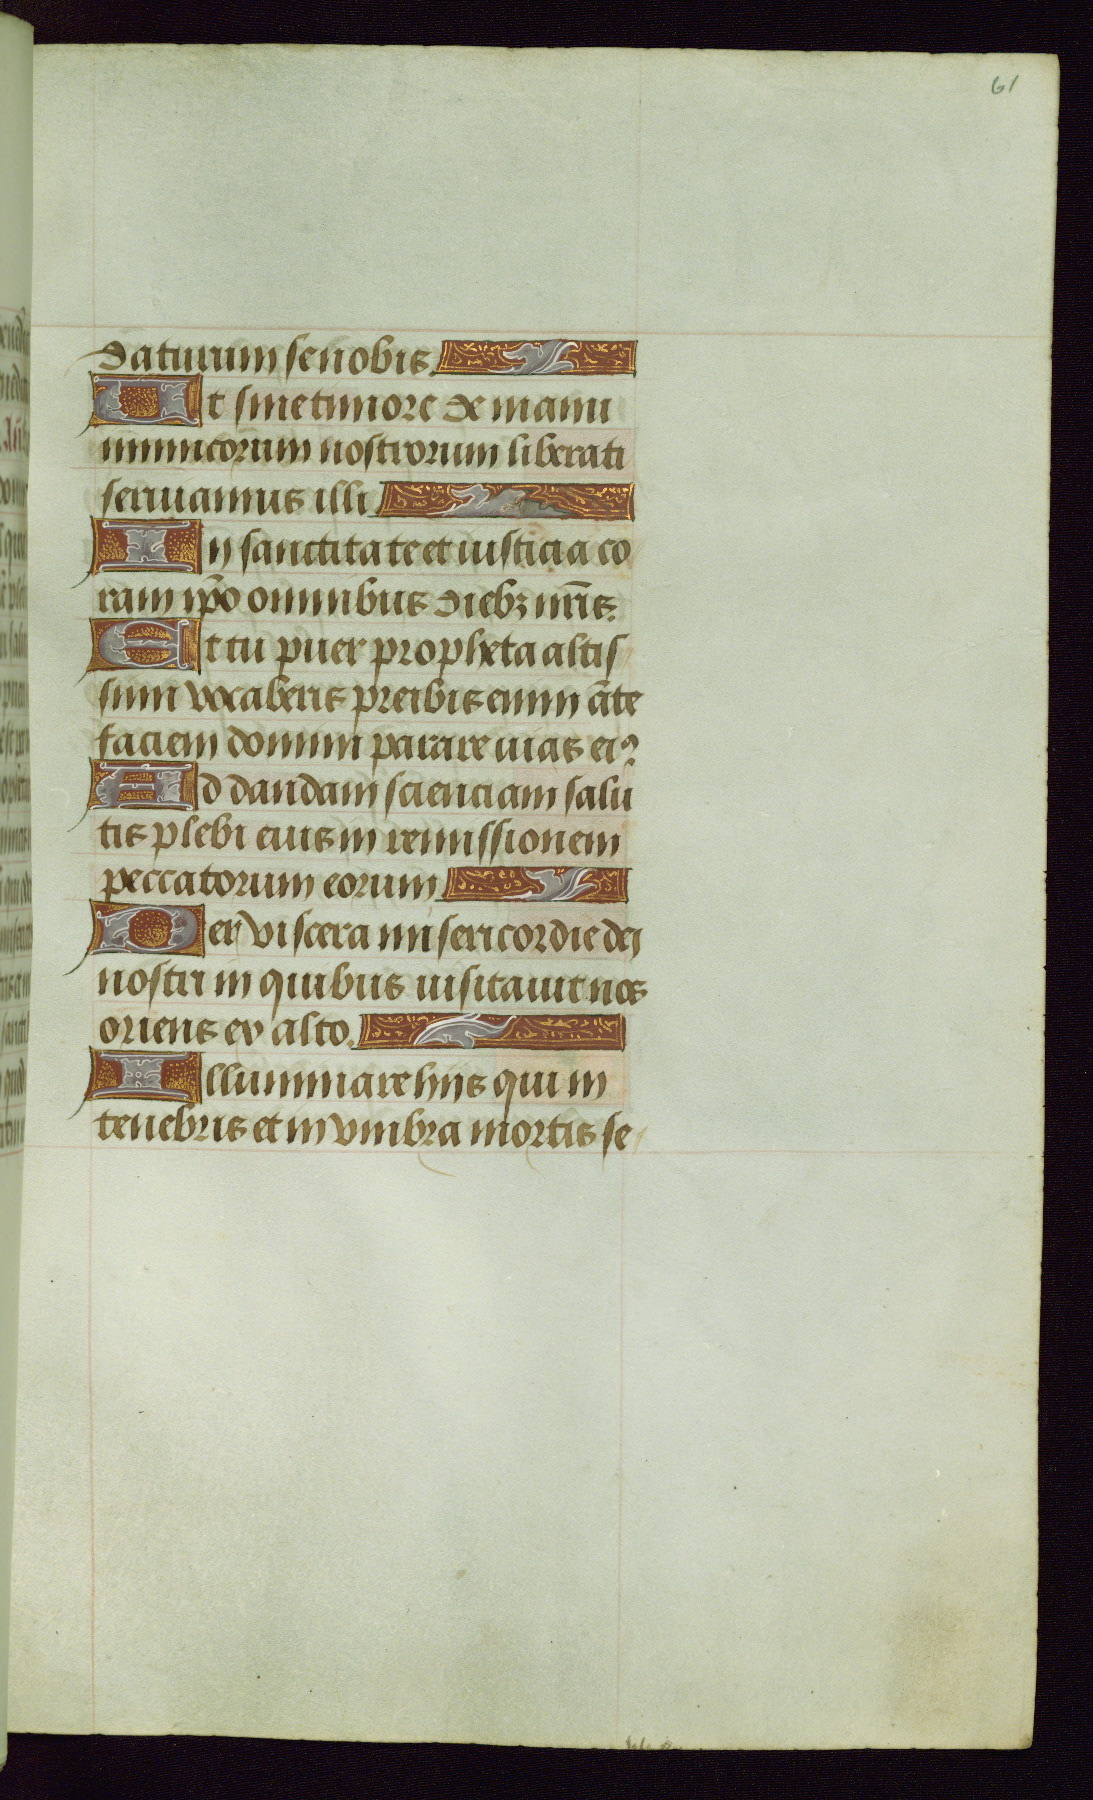 61
daturum se nobis.
Ut sine timore de manu
inimicorum nostrorum liberati
seruiamus illi
In sanctitate et iusticia co
ram ip̄o omnibus dieb3 nr̄is.
Et tu puer propheta altis
simi vocaberis preibis enim ān̄te
faciem domini parare uias ei9
Ad dandam scienciam salu
tis plebi eius in remissionem
peccatorum eorum
Per viscera misericordie dei
nostri in quibus uisitauit nos
oriens ex alto.
Illuminare hijs qui in
tenebris et in vmbra mortis se